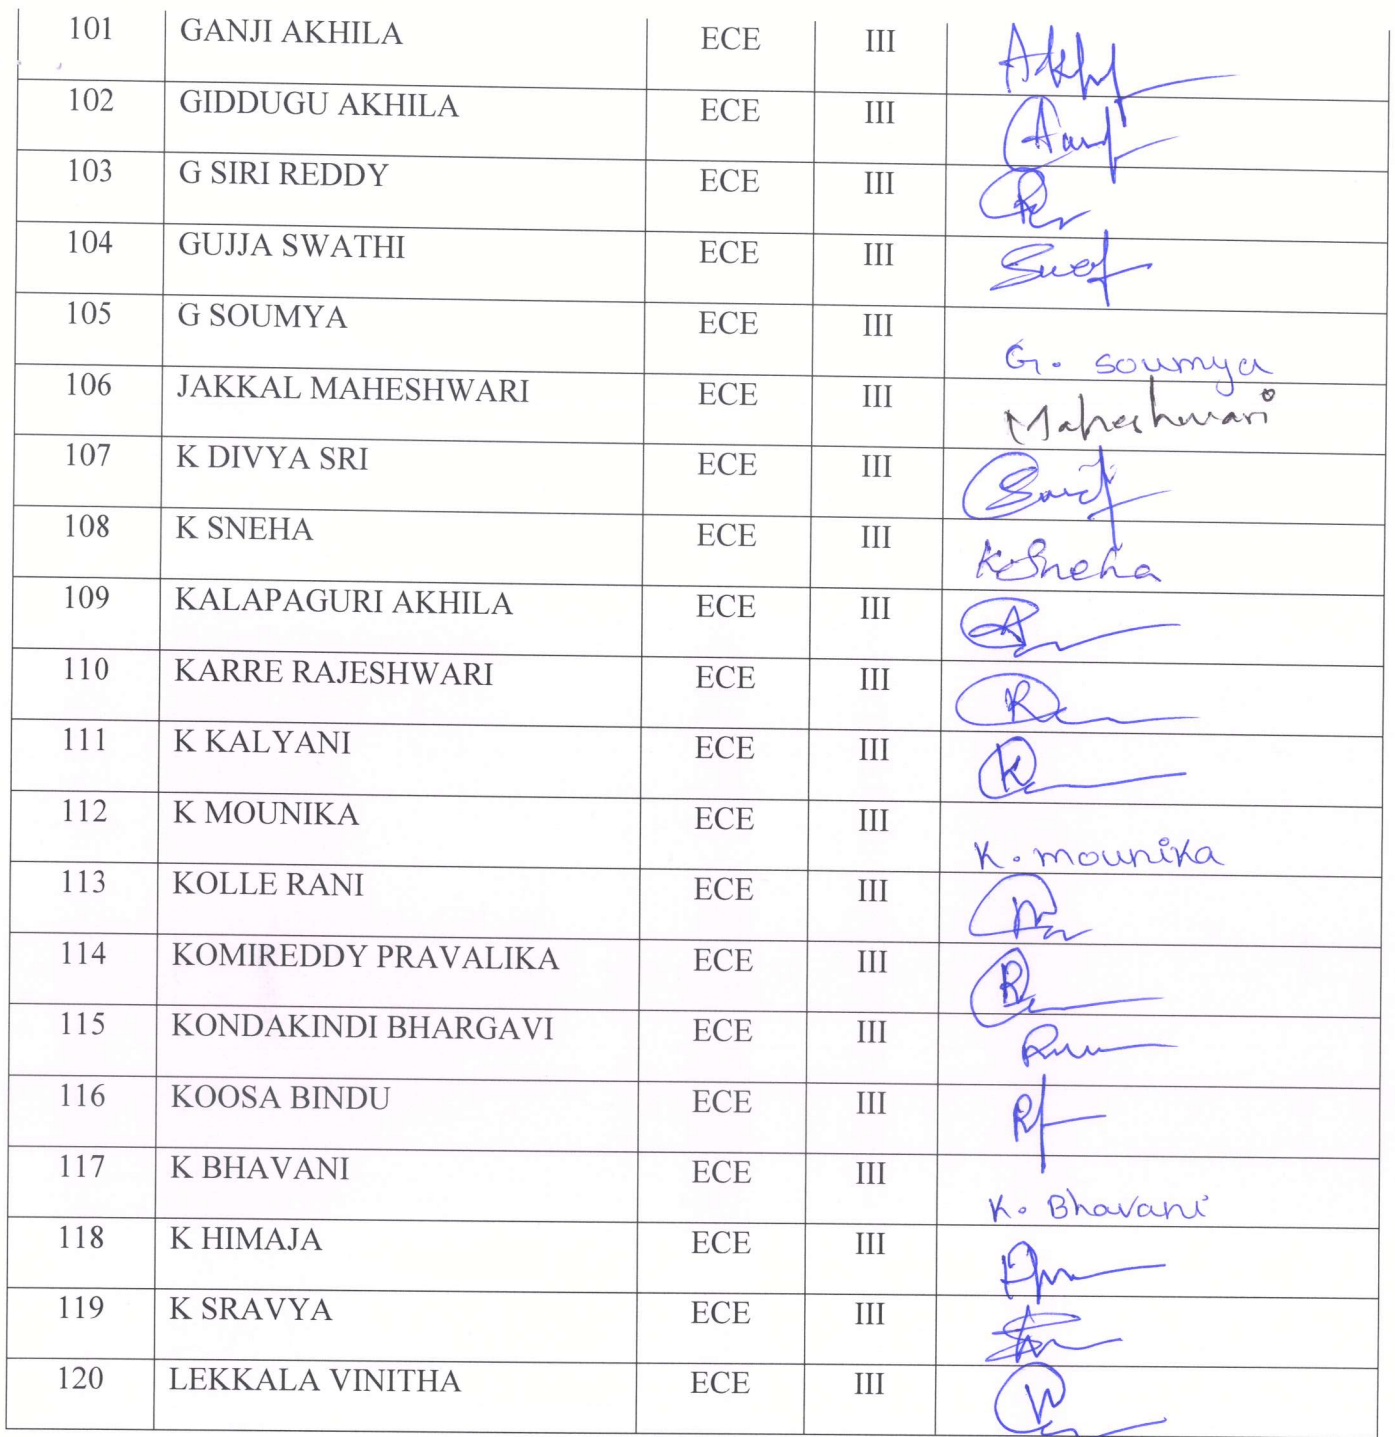 101 GANJI AKHILA ECE III
102 GIDDUGU AKHILA ECE III
103 G SIRI REDDY ECE III
104 GUJJA SWATHI ECE III
105 G SOUMYA ECE III G. soumya
106 JAKKAL MAHESHWARI ECE III Maheshwari
107 K DIVYA SRI ECE III
108 K SNEHA ECE III K Sneha
109 KALAPAGURI AKHILA ECE III
110 KARRE RAJESHWARI ECE III
111 K KALYANI ECE III
112 K MOUNIKA ECE III K. mounika
113 KOLLE RANI ECE III
114 KOMIREDDY PRAVALIKA ECE III
115 KONDAKINDI BHARGAVI ECE III
116 KOOSA BINDU ECE III
117 K BHAVANI ECE III K. Bhavani
118 K HIMAJA ECE III
119 K SRAVYA ECE III
120 LEKKALA VINITHA ECE III